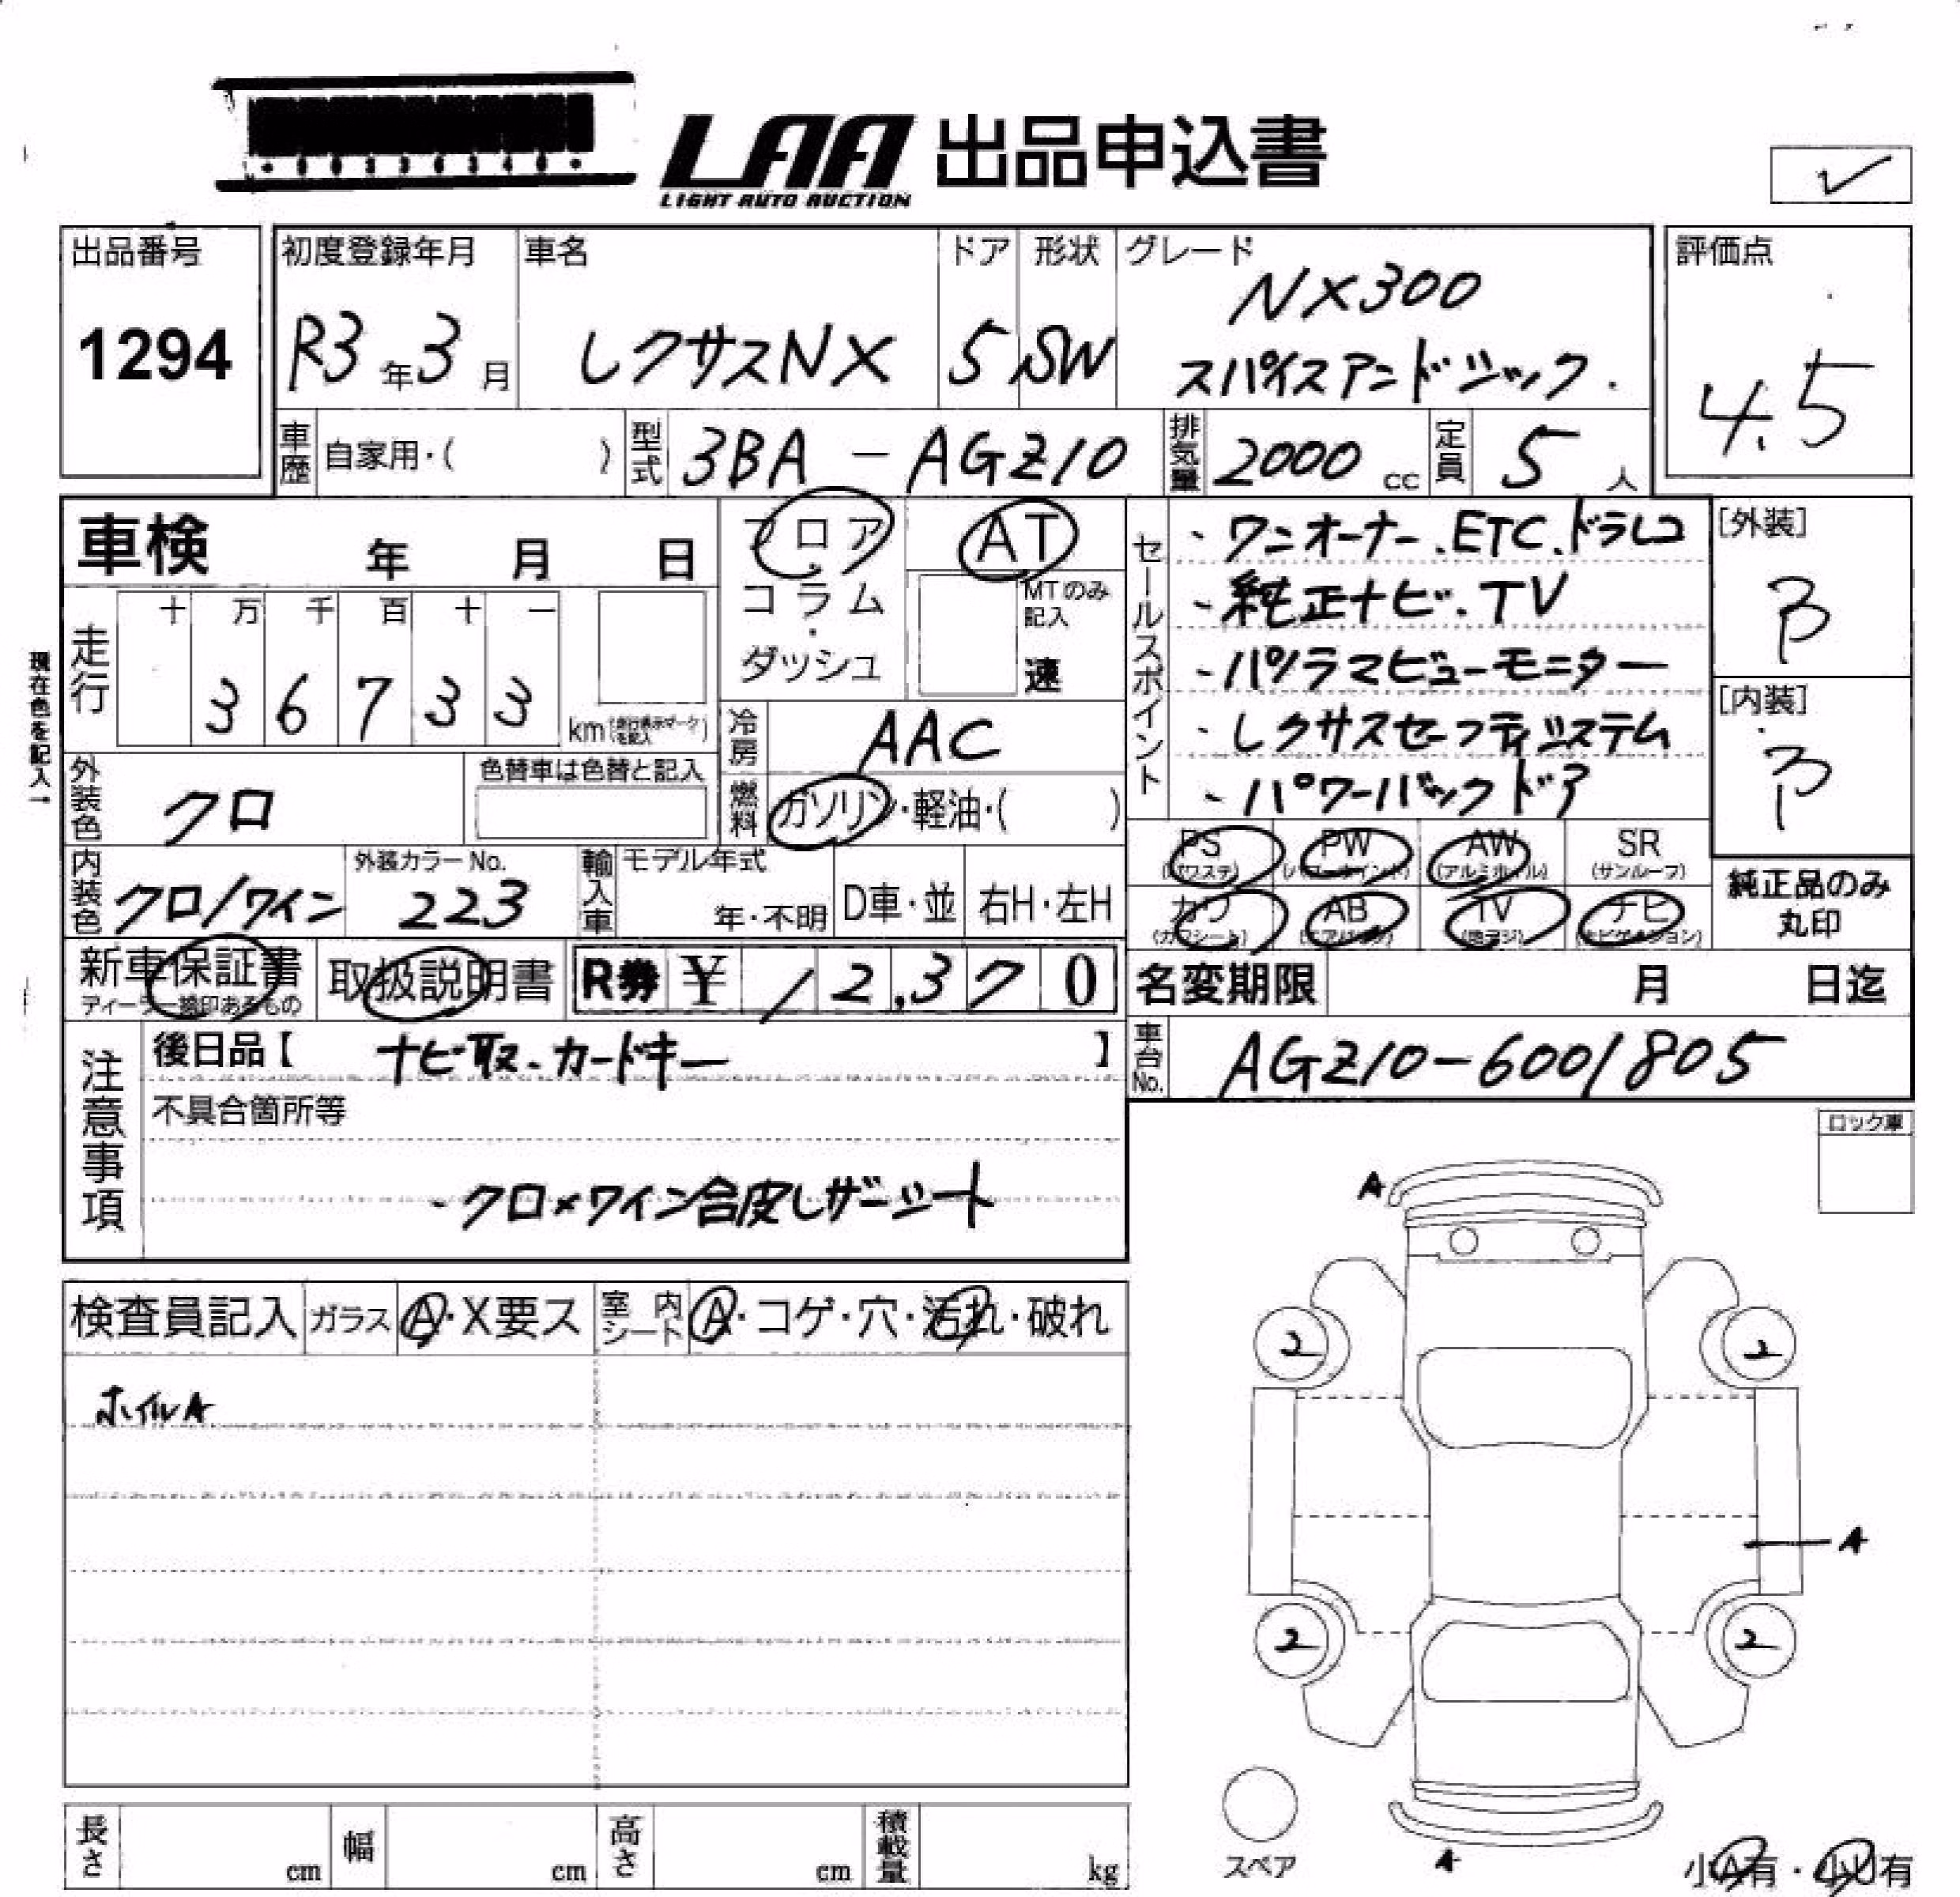 LAA 出品申込書
LIGHT AUTO AUCTION
✓
出品番号
1294
初度登録年月
R3年3月
車名
レクサスNX
ドア
5
形状
SW
グレード
NX300
スパイスアンドシック.
評価点
4.5
車歴
自家用・( )
型式
3BA-AGZ10
排気量
2000 cc
定員
5 人
車検 年 月 日
フロア
・
コラム
・
ダッシュ
AT
MTのみ
記入
速
セールスポイント
・ワンオーナー.ETC.ドラレコ
・純正ナビ.TV
・パノラマビューモニター
・レクサスセーフティシステム
・パワーバックドア
[外装]
B
[内装]
B
現在色を記入→
走行
十 万 千 百 十 一
3 6 7 3 3
km(走行表示マークを記入)
冷房
AAC
燃料
ガソリン・軽油・( )
外装色
クロ
色替車は色替と記入
内装色
クロ/ワイン
外装カラーNo.
223
輸入車
モデル年式
年・不明
D車・並
右H・左H
PS
(パワステ)
PW
(パワーウインド)
AW
(アルミホイル)
SR
(サンルーフ)
カワ
(カワシート)
AB
(エアバック)
TV
(地デジ)
ナビ
(ナビゲーション)
純正品のみ
丸印
新車保証書
ディーラー捺印あるもの
取扱説明書
R券 ¥ 12,370
名変期限 月 日迄
車台No.
AGZ10-6001805
注意事項
後日品【 ナビ取.カードキー 】
不具合箇所等
・クロ×ワイン合皮レザーシート
ロック車
検査員記入
ガラス
A・X要ス
室内シート
A・コゲ・穴・汚れ・破れ
ホイルA
A
2
2
A
2
2
スペア
A
小A有・小U有
長さ cm
幅 cm
高さ cm
積載量 kg